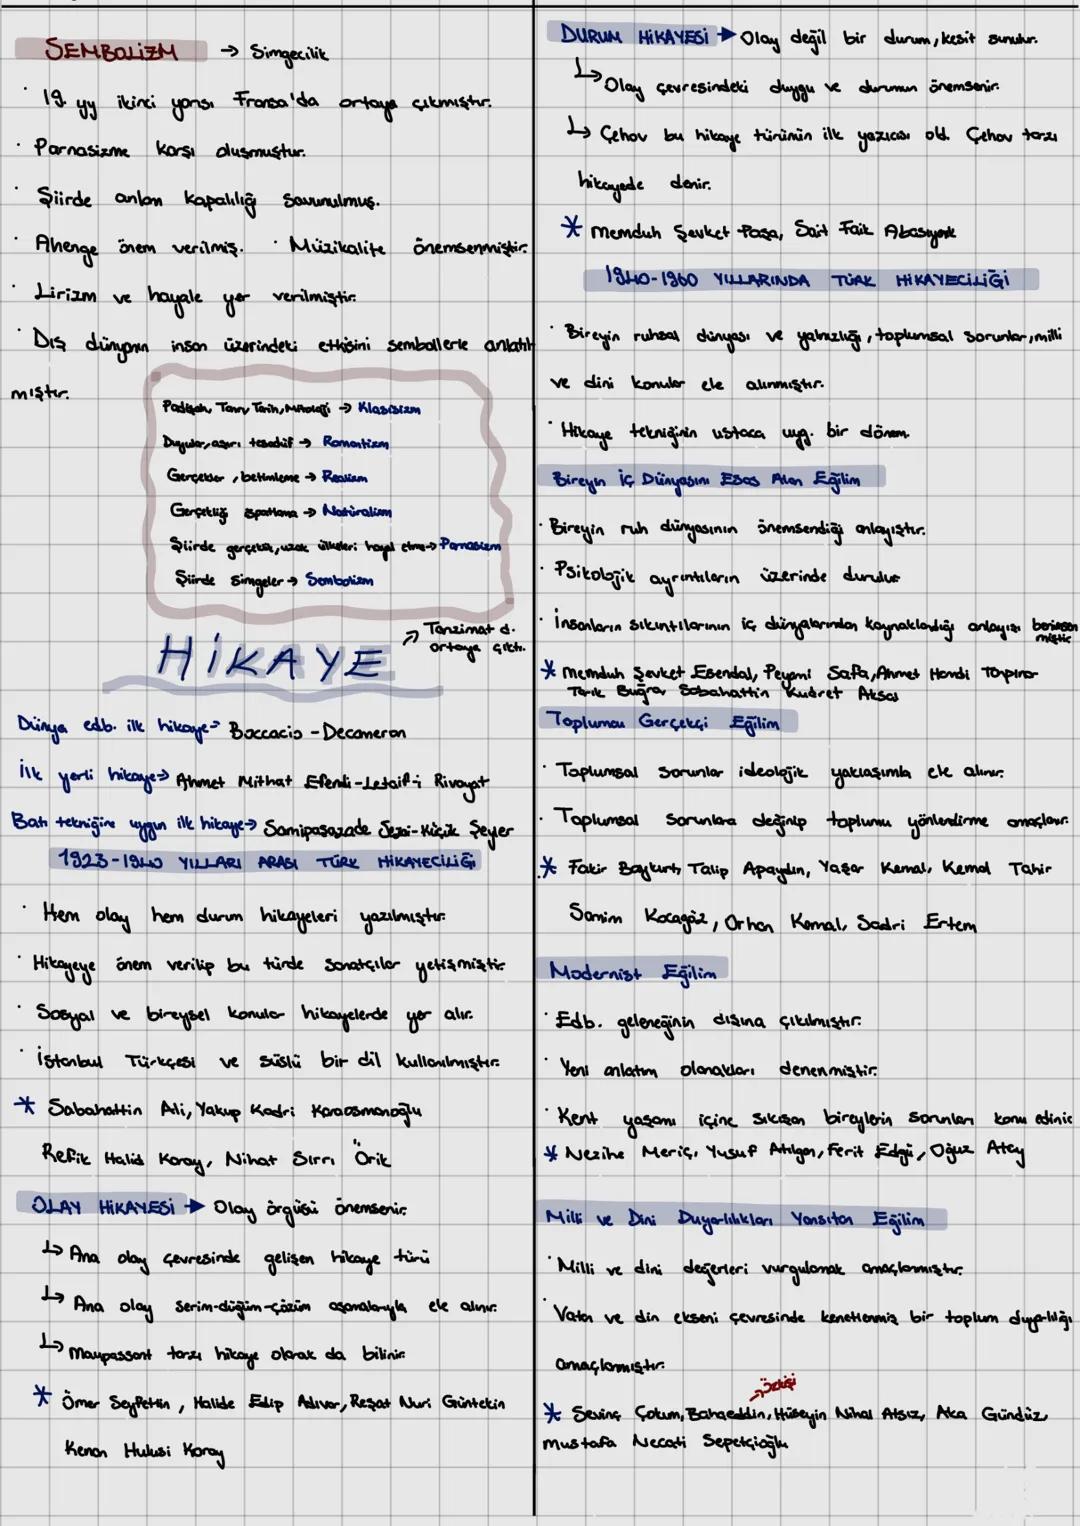 SEMBOLİZM → Simgecilik
· 19. yy ikinci yarısı Fransa'da ortaya çıkmıştır.
· Parnasizme karşı oluşmuştur.
· Şiirde anlam kapalılığı savunulmuş.
· Ahenge önem verilmiş. · Müzikalite önemsenmiştir.
· Lirizm ve hayale yer verilmiştir.
· Dış dünyanın insan üzerindeki etkisini sembollerle anlatıl
mıştır.
Padişah, Tanrı, Tarih, Mitoloji → Klasisizm
Duygular, aşırı tesadüf → Romantizm
Gerçekler, betimleme → Realizm
Gerçekliği ispatlama → Natüralizm
Şiirde gerçeklik, uzak ülkeleri hayal etme → Parnasizm
Şiirde Simgeler → Sembolizm
HİKAYE → Tanzimat d.
ortaya çıktı.
Dünya edb. ilk hikaye → Boccacio - Decameron
İlk yerli hikaye → Ahmet Mithat Efendi - Letaif-i Rivayat
Batı tekniğine uygun ilk hikaye → Samipaşazade Sezai - Küçük Şeyler
1923-1940 YILLARI ARASI TÜRK HİKAYECİLİĞİ
· Hem olay hem durum hikayeleri yazılmıştır.
· Hikayeye önem verilip bu türde sanatçılar yetişmiştir.
· Sosyal ve bireysel konular hikayelerde yer alır.
· İstanbul Türkçesi ve süslü bir dil kullanılmıştır.
* Sabahattin Ali, Yakup Kadri Karaosmanoğlu
Refik Halid Karay, Nihat Sırrı Örik
OLAY HİKAYESİ → Olay örgüsü önemsenir.
↳ Ana olay çevresinde gelişen hikaye türü
↳ Ana olay serim-düğüm-çözüm aşamalarıyla ele alınır.
↳ Maupassant tarzı hikaye olarak da bilinir.
* Ömer Seyfettin, Halide Edip Adıvar, Reşat Nuri Güntekin
Kenan Hulusi Koray
DURUM HİKAYESİ → Olay değil bir durum, kesit sunulur.
↳ Olay çevresindeki duygu ve durumun önemsenir.
↳ Çehov bu hikaye türünün ilk yazıcısı old. Çehov tarzı
hikayede denir.
* Memduh Şevket Paşa, Sait Faik Abasıyanık
1940-1960 YILLARINDA TÜRK HİKAYECİLİĞİ
· Bireyin ruhsal dünyası ve yalnızlığı, toplumsal sorunlar, milli
ve dini konular ele alınmıştır.
· Hikaye tekniğinin ustaca uyg. bir dönem.
Bireyin İç Dünyasını Esas Alan Eğilim
· Bireyin ruh dünyasının önemsendiği anlayıştır.
· Psikolojik ayrıntıların üzerinde durulur
· İnsanların sıkıntılarının iç dünyalarından kaynaklandığı anlayışı benimsen
miştir
* Memduh Şevket Esendal, Peyami Safa, Ahmet Hamdi Tanpınar
Tarık Buğra Sabahattin Kudret Aksal
Toplumcu Gerçekçi Eğilim
· Toplumsal sorunlar ideolojik yaklaşımla ele alınır.
· Toplumsal sorunlara değinip toplumu yönlendirme amaçlanır.
* Fakir Baykurt, Talip Apaydın, Yaşar Kemal, Kemal Tahir
Samim Kocagöz, Orhan Kemal, Sadri Ertem
Modernist Eğilim
· Edb. geleneğinin dışına çıkılmıştır.
· Yeni anlatım olanakları denenmiştir.
· Kent yaşamı içine sıkışan bireylerin sorunları konu edinir
* Nezihe Meriç, Yusuf Atılgan, Ferit Edgü, Oğuz Atay
Milli ve Dini Duyarlılıkları Yansıtan Eğilim
· Milli ve dini değerleri vurgulamak amaçlanmıştır.
· Vatan ve din ekseni çevresinde kenetlenmiş bir toplum duyarlılığı
amaçlanmıştır.
→ Özkişi
* Sevinç Çokum, Bahaeddin, Hüseyin Nihal Atsız, Aka Gündüz,
Mustafa Necati Sepetçioğlu